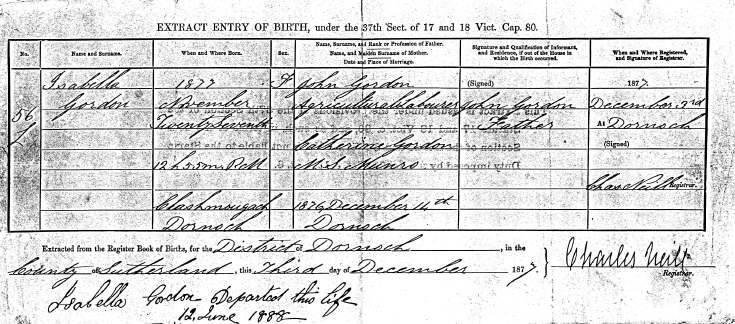 EXTRACT ENTRY OF BIRTH, under the 37th Sect. of 17 and 18 Vict. Cap. 80.
No.
Name and Surname.
When and Where Born.
Sex.
Name, Surname, and Rank or Profession of Father.
Name, and Maiden Surname of Mother.
Date and Place of Marriage.
Signature and Qualification of Informant,
and Residence, if out of the House in
which the Birth occurred.
When and Where Registered,
and Signature of Registrar.
56
Isabella
Gordon
1877
November
Twenty Seventh
12 h. 5 m. P.M.
Clashmougach
Dornoch
F
John Gordon
Agricultural Labourer
Catherine Gordon
M.S. Munro
1876 December 14th
Dornoch
(Signed)
John Gordon
Father
1877.
December 3rd
At Dornoch
(Signed)
Chas. Neill Registrar.
Extracted from the Register Book of Births, for the District of Dornoch, in the
County of Sutherland, this Third day of December 1877.
Charles Neill
Registrar.
Isabella Gordon Departed this life
12 June 1888